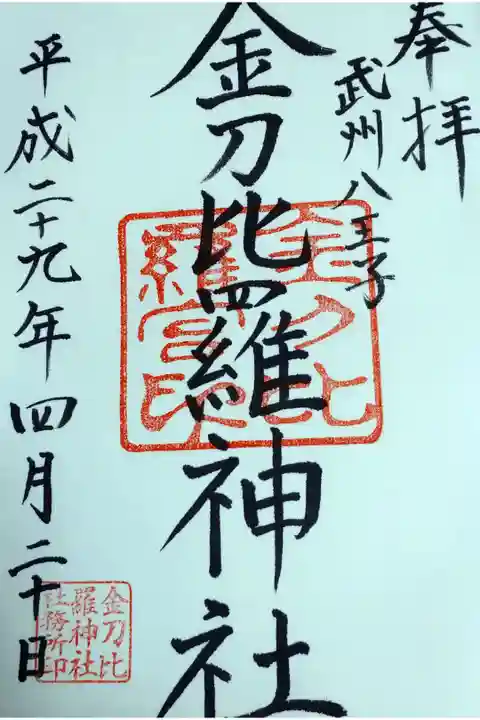 奉拝
武州八王子
金刀比羅神社
平成二十九年四月二十日
金刀比
羅宮印
金刀比
羅神社
社務所印